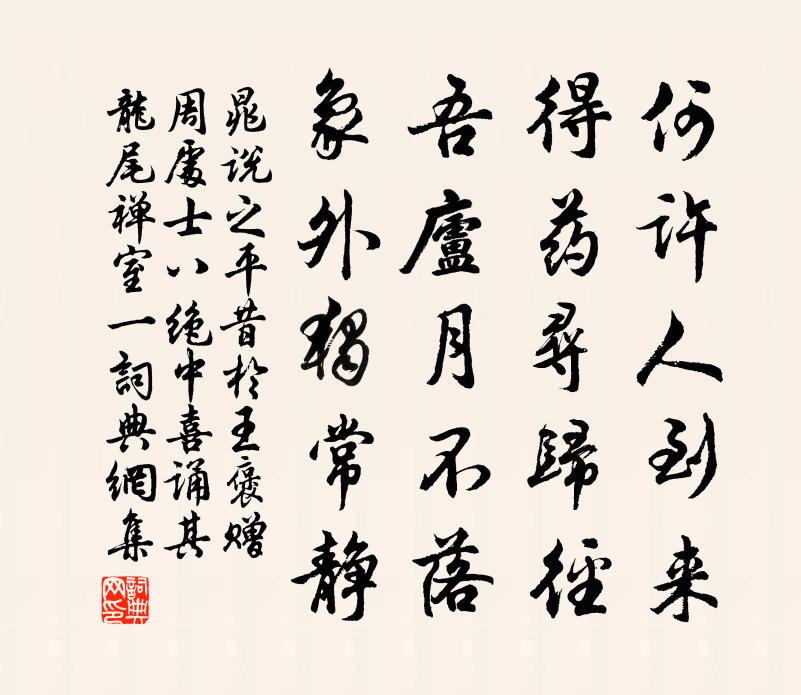 何许人到来
得药寻歸徑
吾廬月不落
象外独常静
晁说之平昔於王褒赠
周處士八绝中喜诵其
龍尾禅室一詞典網集
詞典网印